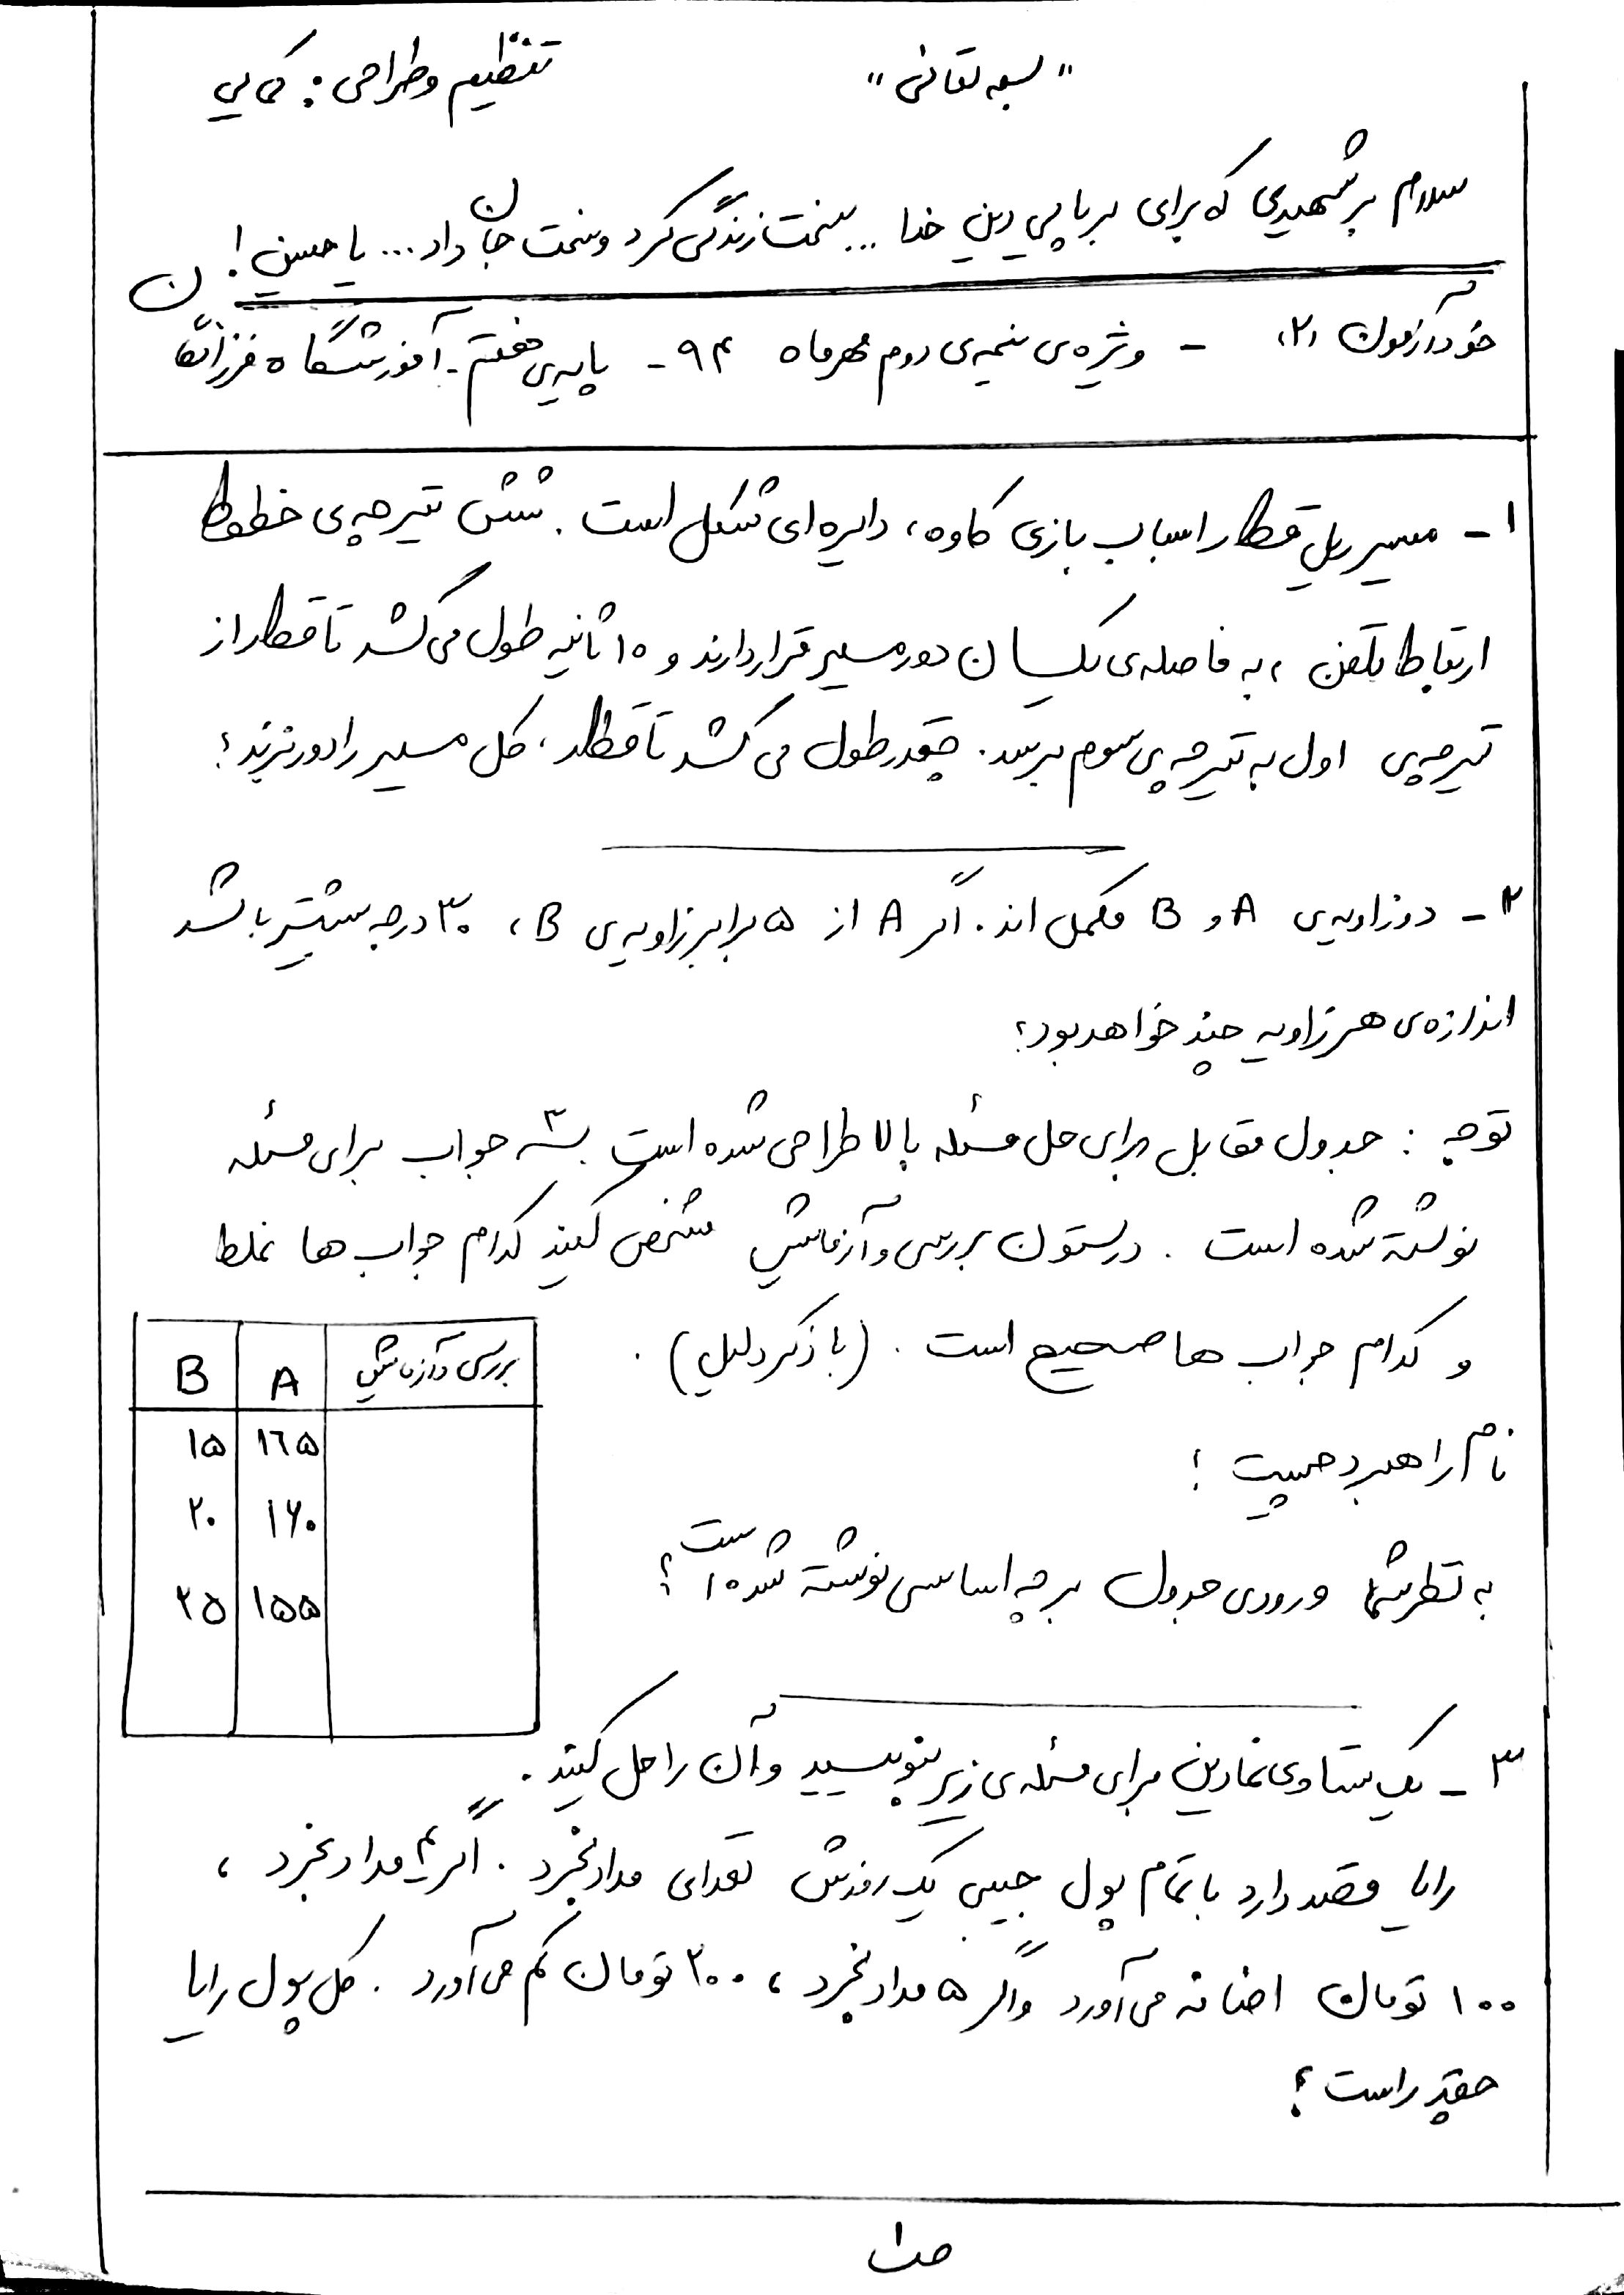 "بسمه تعالی"
تنظیم و طراحی :
سلام بر شهیدی که برای برپایی دین خدا ... سخت زندگی کرد و سخت جان داد ... یا حسین !
خودآزمون (۲) - ویژه‌ی نیمه‌ی دوم مهرماه ۹۴ - پایه‌ی هفتم - آموزشگاه فرزانگان
۱- مسیر ریلِ قطار اسباب بازی کاوه، دایره‌ای شکل است. شش تیرچه‌ی خطوط
ارتباط تلفن، به فاصله‌ی یکسان دور مسیر قرار دارند و ۱۰ ثانیه طول می‌کشد تا قطار از
تیرچه‌ی اول به تیرچه‌ی سوم برسد. چقدر طول می‌کشد تا قطار، کل مسیر را دور بزند؟
۲- دو زاویه‌ی A و B مکمل‌اند. اگر A از ۵ برابر زاویه‌ی B، ۳۰ درجه بیشتر باشد
اندازه‌ی هر زاویه چند خواهد بود؟
توجه : جدول مقابل برای حل مسئله بالا طراحی شده است ۳ جواب برای مسئله
نوشته شده است. در ستون بررسی و آزمایش مشخص کنید کدام جواب‌ها غلط
و کدام جواب‌ها صحیح است. (با ذکر دلیل).
B A بررسی و آزمایش
۱۵ ۱۶۵
۲۰ ۱۶۰
۲۵ ۱۵۵
نام راهبرد چیست ؟
به نظر شما ورودی جدول بر چه اساسی نوشته شده است؟
۳- یک تساوی نمادین برای مسئله‌ی زیر بنویسید و آن را حل کنید.
رایا قصد دارد با تمام پول جیبی یک روزش تعدای مداد بخرد. اگر ۴ مداد بخرد،
۱۰۰ تومان اضافه می‌آورد و اگر ۵ مداد بخرد، ۲۰۰ تومان کم می‌آورد. کل پول رایا
چقدر است؟
ص۱